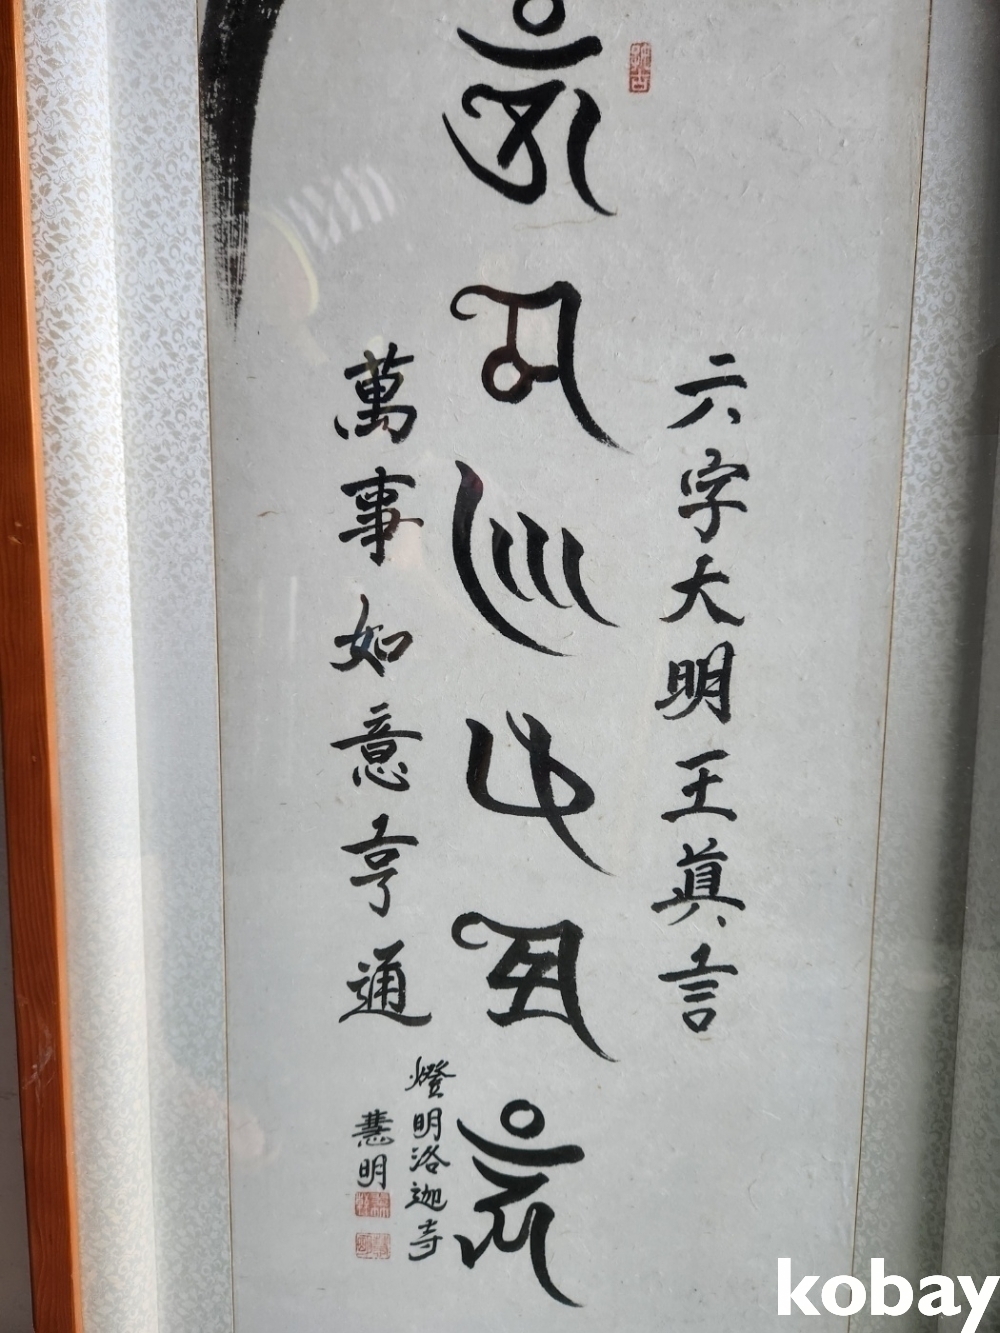 六字大明王眞言
𑖌𑖼𑖦𑖜𑖰𑖢𑖟𑖿𑖦𑖸𑖮𑖳𑖼
萬事如意亨通
燈明洛迦寺
慧明
kobay